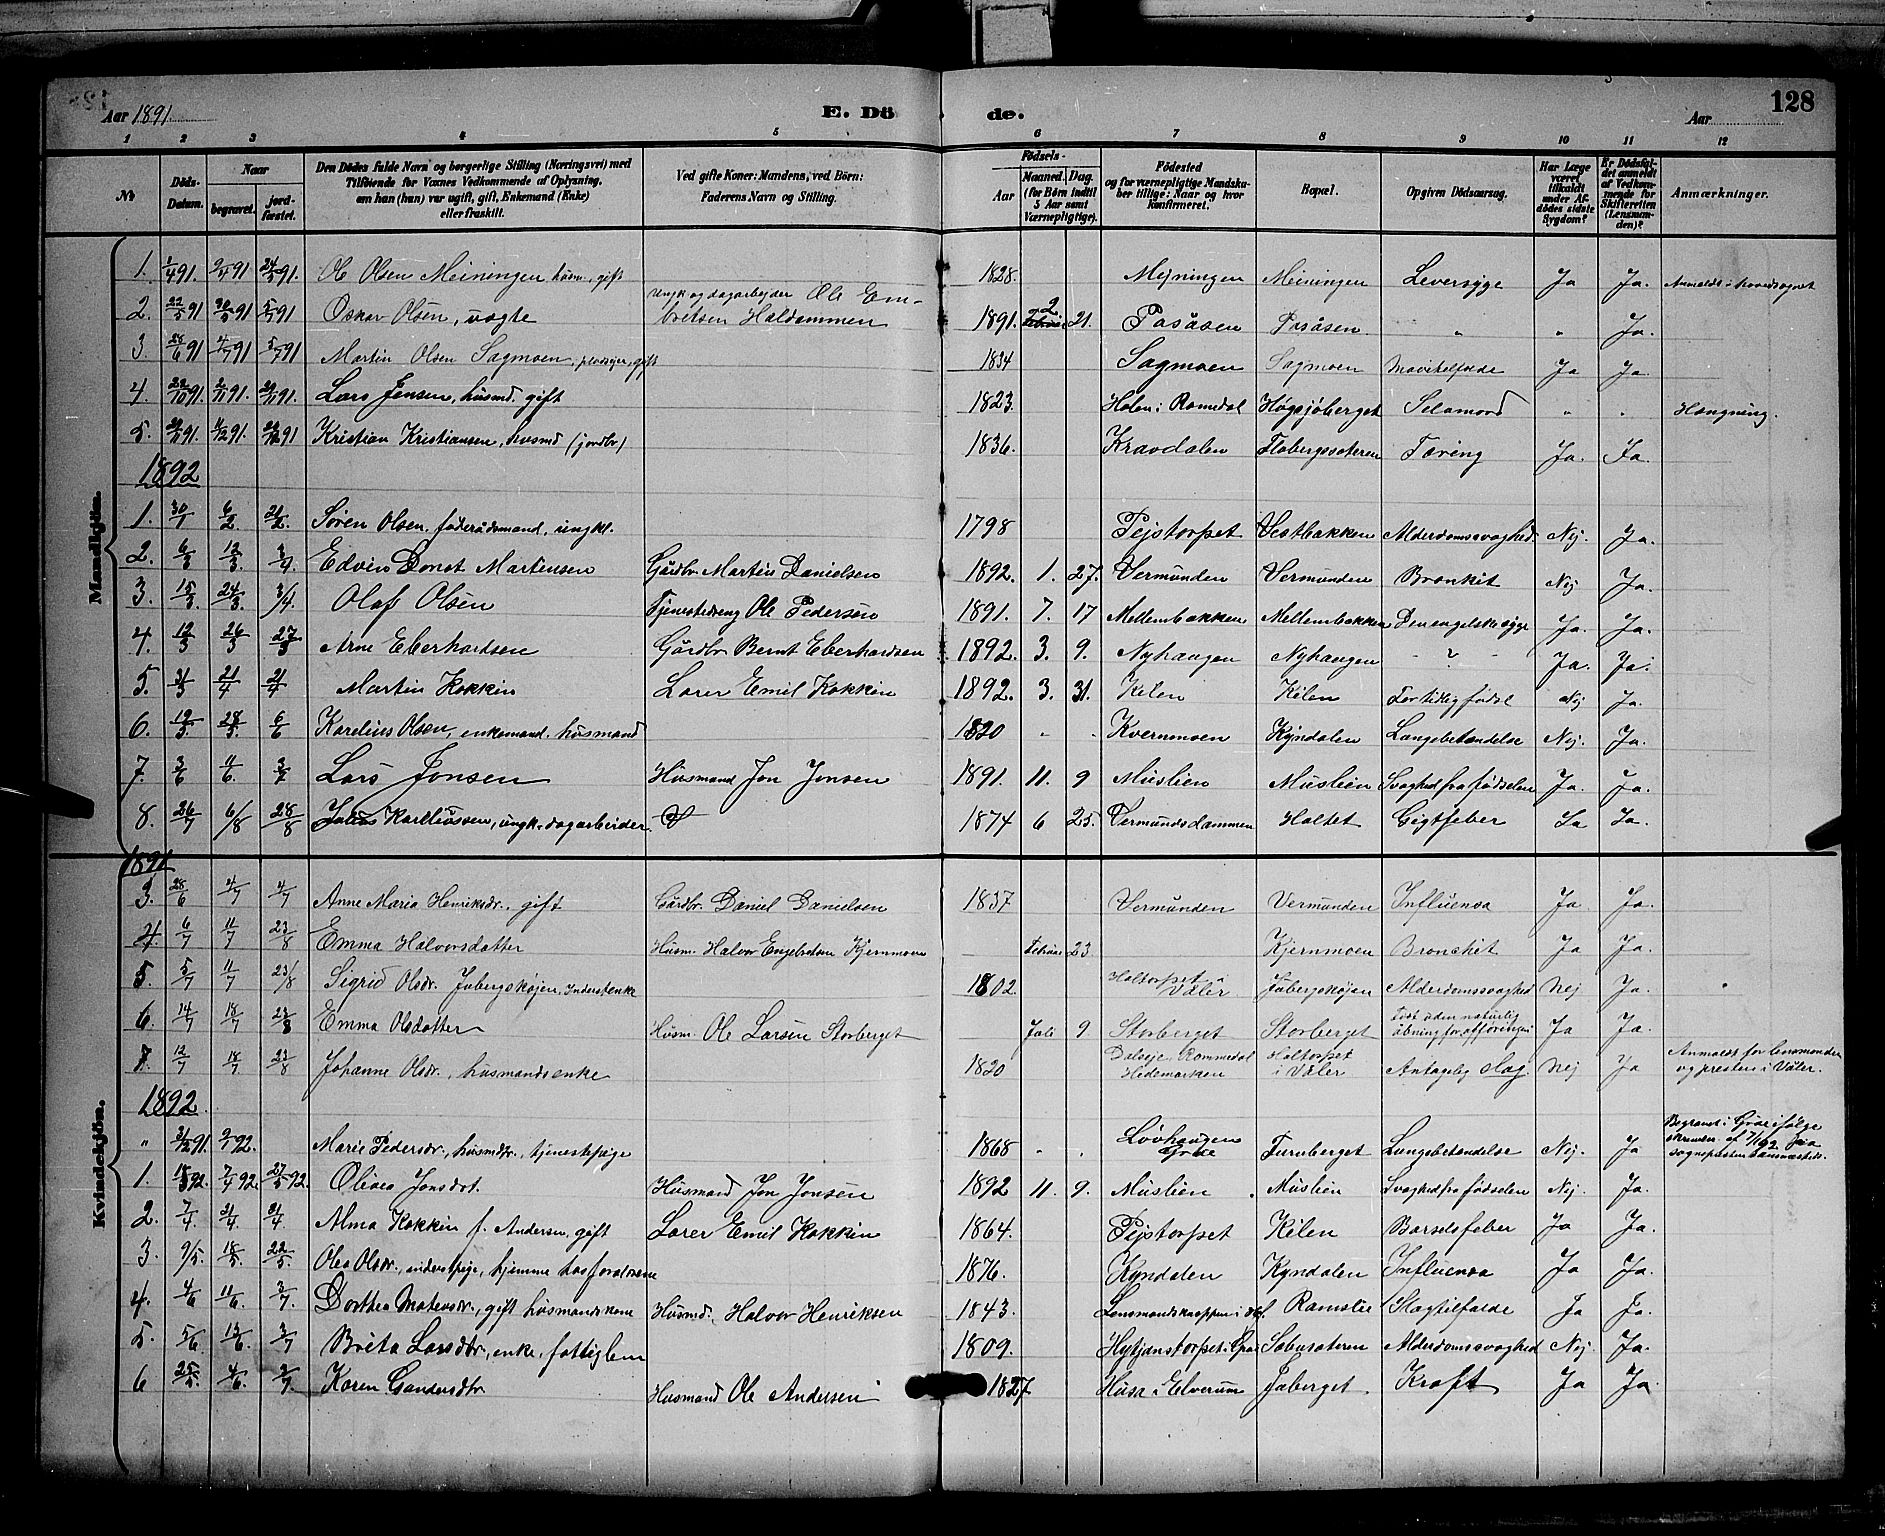 Aar 1891. E. Dö de. Aar 128
1 2 3 4 5 6 7 8 9 10 11 12
No
Döds-Datum.
Naar begravet. jordfæstet.
Den Dödes fulde Navn og borgerlige Stilling (Næringsvei) med Tilföiende for Voxnes Vedkommende af Oplysning, om han (hun) var ugift, gift, Enkemand (Enke) eller fraskilt.
Ved gifte Koner: Mandens, ved Börn: Faderens Navn og Stilling.
Födsels- Aar Maaned. Dag. (for Börn indtil 5 Aar samt Værnepligtige).
Födested og for værnepligtige Mandskaber tillige: Naar og hvor konfirmeret.
Bopæl.
Opgiven Dödsaarsag.
Har Læge været tilkaldt under Afdödes sidste Sygdom?
Er Dödsfaldet anmeldt af Vedkommende for Skifteretten (Lensmanden)?
Anmærkninger.
Mandkjön.
1. 1/4 91. 9/4 91 24/5 91. Ole Olsen Meiningen, husm., gift 1828. Mejningen Meiningen Leversyge Ja Ja. Anmeldt i hovedsognet
2. 22/5 91 30/5 91 5/7 91 Oskar Olsen, uægte Ungk og dagarbejder Ole Embretsen Haldammen 1891. 2 21. Pasåsen Pasåsen " " Ja.
3. 28/6 91 4/7 91 5/7 91 Martin Olsen Sagmoen, pladsejer, gift 1834 Sagmoen Sagmoen Mavetilfælde Ja Ja.
4. 22/10 91. 2/11 91. 29/11 91. Lars Jensen, husmd. gift 1823. Holen i Romedal Høgsjøberget Selvmord " " Hængning.
5. 29/11 91. 4/12 91. 29/12 91 Kristian Kristiansen, husmd (jordbr) 1836. Kravdalen Flobergssæteren Tæring Ja. Ja.
1892
1. 30/1 6/2 21/2. Søren Olsen, føderådsmand, ungk. 1798 Pejstorpet Vestbakken Alderdomssvaghed Nej. Ja.
2. 6/3 12/3 3/4. Edvin Donat Martinsen Gårdbr. Martin Danielsen 1892. 1. 27. Vermunden Vermunden Bronkit Nej Ja.
3. 15/3. 24/3. 3/4. Olaf Olsen Tjenestedreng Ole Pedersen 1891. 7. 17 Mellembakken Mellembakken Den engelske syge Ja. Ja.
4. 19/3 26/3 27/3 Arne Eberhardsen Gårdbr Bernt Eberhardsen 1892. 3. 9. Nyhaugen Nyhaugen - ? - Ja. Ja.
5. 31/3 21/4 21/4 Martin Kokkin Lærer Emil Kokkin 1892. 3. 31. Kilen Kilen For tidlig født Nej Ja.
6. 19/5. 28/5. 6/6 Karelius Olsen, enkemand, husmand 1820 " " Kvernmoen Kyndalen Lungebetændelse Nej. Ja.
7. 3/6 11/6. 3/7 Lars Jonsen Husmand Jon Jonsen 1891. 11. 9 Muslien Muslien Svaghed fra fødselen Ja. Ja.
8. 26/7 6/8 28/8 Julius Kareliussen, ungk. dagarbeider. 1874 6 25. Vermundsdammen Haltet Gigtfeber Ja Ja.
Kvindekjön.
1891
3. 28/6 4/7 4/7 Anne Maria Henriksdr., gift Gårdbr. Daniel Danielsen 1837 Vermunden Vermunden Influensa Ja Ja.
4. 6/7 11/7 23/8 Emma Halvorsdatter Husm. Halvor Engebretsen Kjernmoen Februar 23. Kjernmoen Bronchit Ja Ja.
5. 5/7 11/7 23/8 Sigrid Olsdr. Jabergskøjen, Inderstenke 1802. Holtorpet i Våler Jabergskøjen Alderdomssvaghed Nej Ja.
6. 14/7 18/7 23/8 Emma Olsdatter Husm. Ole Larsen Storberget Juli 9 Storberget Storberget Født uden naturlig åbning for afføringen Ja Ja.
7. 12/7 18/7 23/8 Johanne Olsdr., husmandsenke 1820 Romedal Hedemarken Holtorpet i Våler Antagelig slag. Nej Ja Anmeldt for lensmanden og presten i Våler.
1892.
" 31/12 91. 9/1 92. Marie Pedersdr., husmdtr., tjenestepige 1868 " " Løvhaugen Grue Furuberget Lungebetændelse Nej. Ja Begravet i Grue ifølge skrivelse af 7/1 92 fra sognepresten
1. 18/3 92. 7/4 92. 27/5 92. Olivea Jonsdat. Husmand Jon Jonsen 1892 11. 9. Muslien Muslien Svaghed fra fødselen Nej. Ja.
2. 7/4 21/4. 21/4. Alma Kokkin f. Andersen, gift Lærer Emil Kokkin 1864. Pejstorpet Kilen Barselfeber Ja Ja.
3. 9/5. 18/5. 22/5. Olea Olsdr., inderstpige, hjemme hos forældrene 1876. Kyndalen Kyndalen Influensa Ja Ja.
4. 4/6 11/6. 3/7. Dorthea Mateusdr., gift husmandskone Husmd. Halvor Henriksen 1843. Ramslie Slagtilfælde Ja Ja.
5. 5/6 13/6. 3/7 Brita Larsdtr., enke, fattiglem 1809. Alderdomssvaghed Nej. Ja.
6 25/5. 4/6. 3/7 Karen Gundersdtr. Husmand Ole Andersen 1827 Husa i Elverum Jaberget. Kræft Ja Ja.